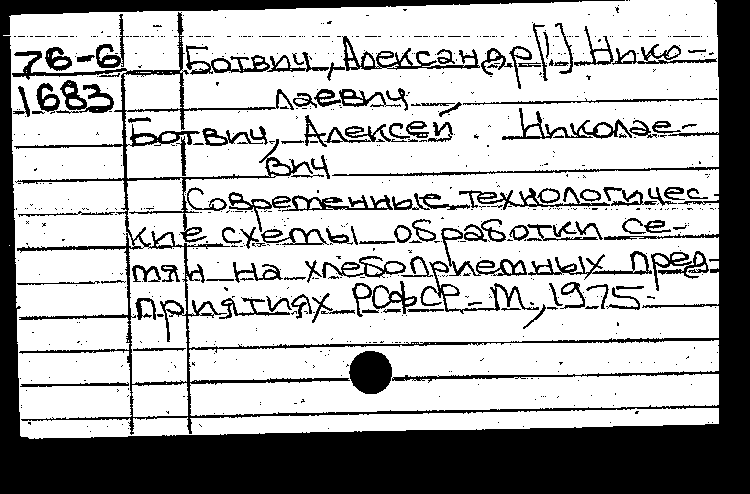 76-6 Ботвич, Александр[!] Нико-
1683 лаевич
Ботвич, Алексей Николае-
вич
Современные технологичес-
кие схемы обработки се-
мян на хлебоприемных пред-
приятиях РСФСР - М., 1975.